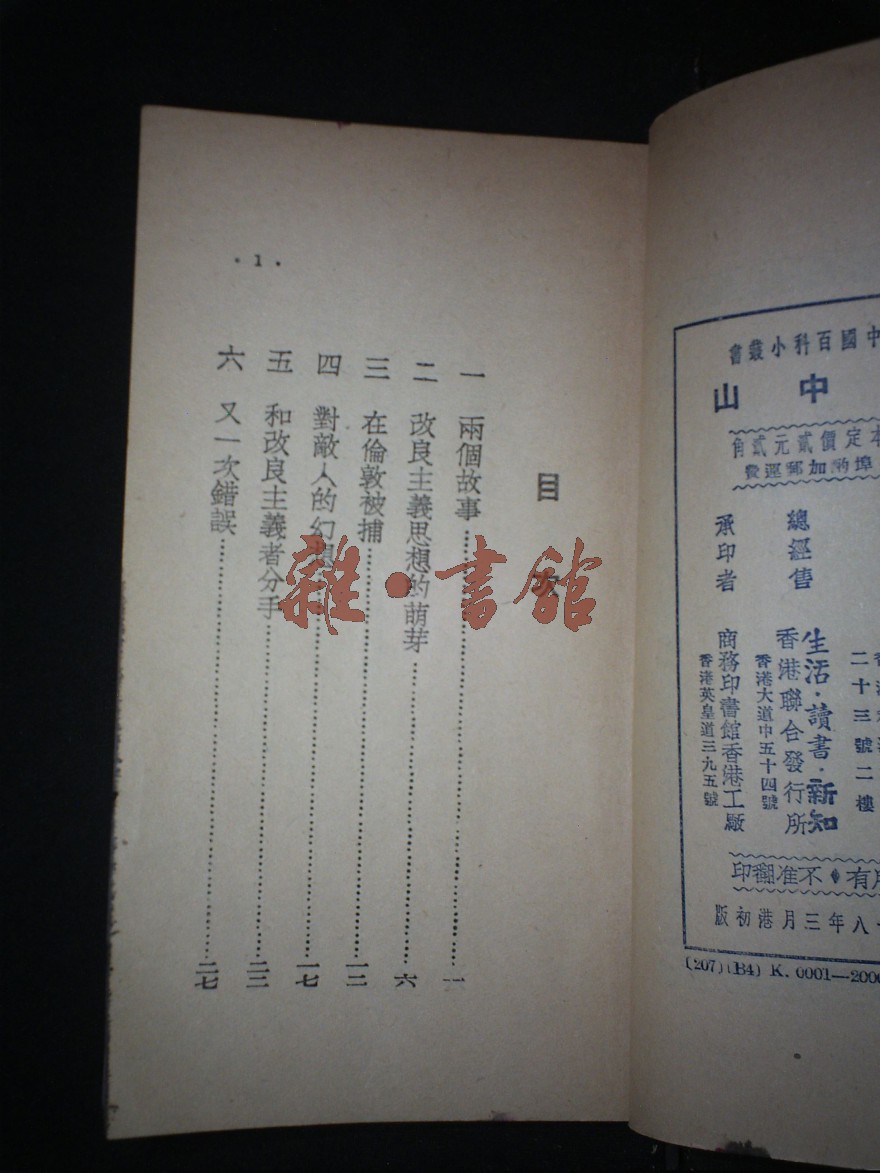 中國百科小叢書
中山
本定價貳元貳角
埠酌加郵運費
二十三號二樓
總經售
生活·讀書·新知
香港聯合發行所
香港大道中五十四號
承印者
商務印書館香港工廠
香港英皇道三九五號
有◆不准翻印
八年三月港初版
(207)(B4) K. 0001—2000
目次
一 兩個故事……一
二 改良主義思想的萌芽……六
三 在倫敦被捕……一二
四 對敵人的幻想……一七
五 和改良主義者分手……二二
六 又一次錯誤……二七
·1·
雜·書館